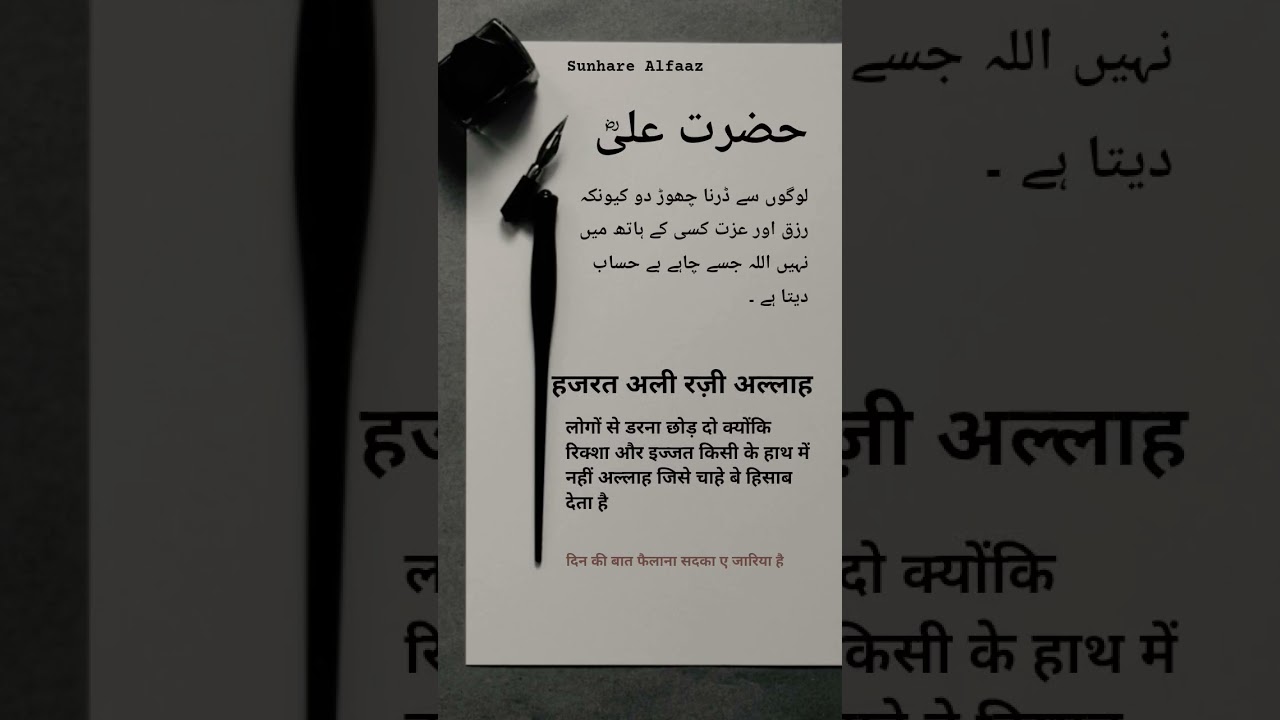 Sunhare Alfaaz
حضرت علیؓ
لوگوں سے ڈرنا چھوڑ دو کیونکہ
رزق اور عزت کسی کے ہاتھ میں
نہیں اللہ جسے چاہے بے حساب
دیتا ہے ۔
हजरत अली रज़ी अल्लाह
लोगों से डरना छोड़ दो क्योंकि
रिक्शा और इज्जत किसी के हाथ में
नहीं अल्लाह जिसे चाहे बे हिसाब
देता है
दिन की बात फैलाना सदका ए जारिया है
نہیں اللہ جسے
دیتا ہے ۔